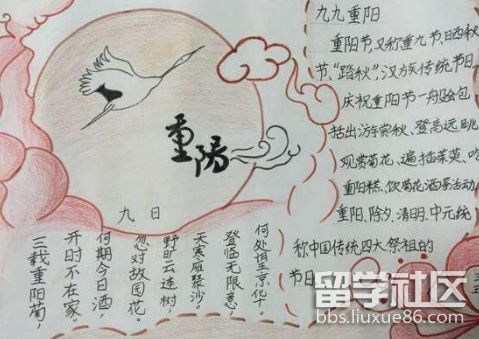 九九重阳
重阳节，又称重九节、晒秋
节、“踏秋”，汉族传统节日
庆祝重阳节一般会包
括出游赏秋、登高远眺
观赏菊花、遍插茱萸、吃
重阳糕、饮菊花酒等活动
重阳、除夕、清明、中元统
称中国传统四大祭祖的
节日
重陽
九日
三载重阳菊，
开时不在家。
何期今日酒，
忽对故园花。
野旷云连树，
天寒雁聚沙。
登临无限意，
何处望京华。
留学社区
bbs.liuxue86.com